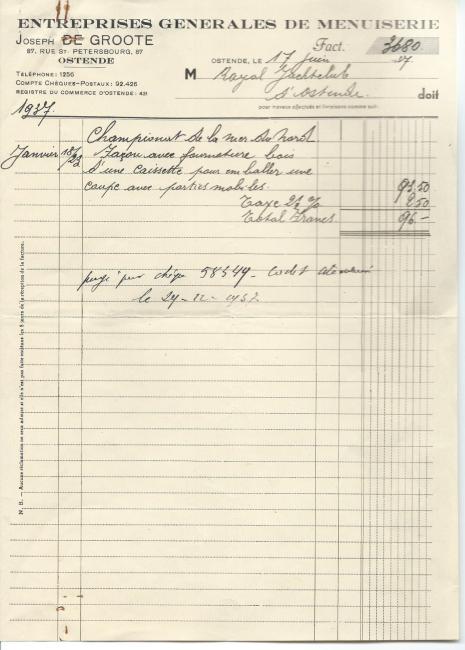 ENTREPRISES GENERALES DE MENUISERIE
JOSEPH DE GROOTE
87, RUE ST. PETERSBOURG, 87
OSTENDE
TÉLÉPHONE: 1256
COMPTE CHÈQUES-POSTAUX: 92.426
REGISTRE DU COMMERCE D'OSTENDE: 431
Fact. 3680
OSTENDE, LE 17 Juin 37
M Royal Yachtclub
d'Ostende doit
pour travaux effectués et livraisons comme suit:
1937
Championnat de la mer du Nord
Janvier 18/23 Façon avec fourniture bois
d'une caissette pour emballer une
coupe avec parties mobiles. 93,50
Taxe 2½ % 2 50
Total Francs 96 -
payé par chèque 58349 -
le 29-12-1937
N. B. - Aucune réclamation ne sera admise si elle n'est pas faite endéans les 8 jours de la réception de la facture.